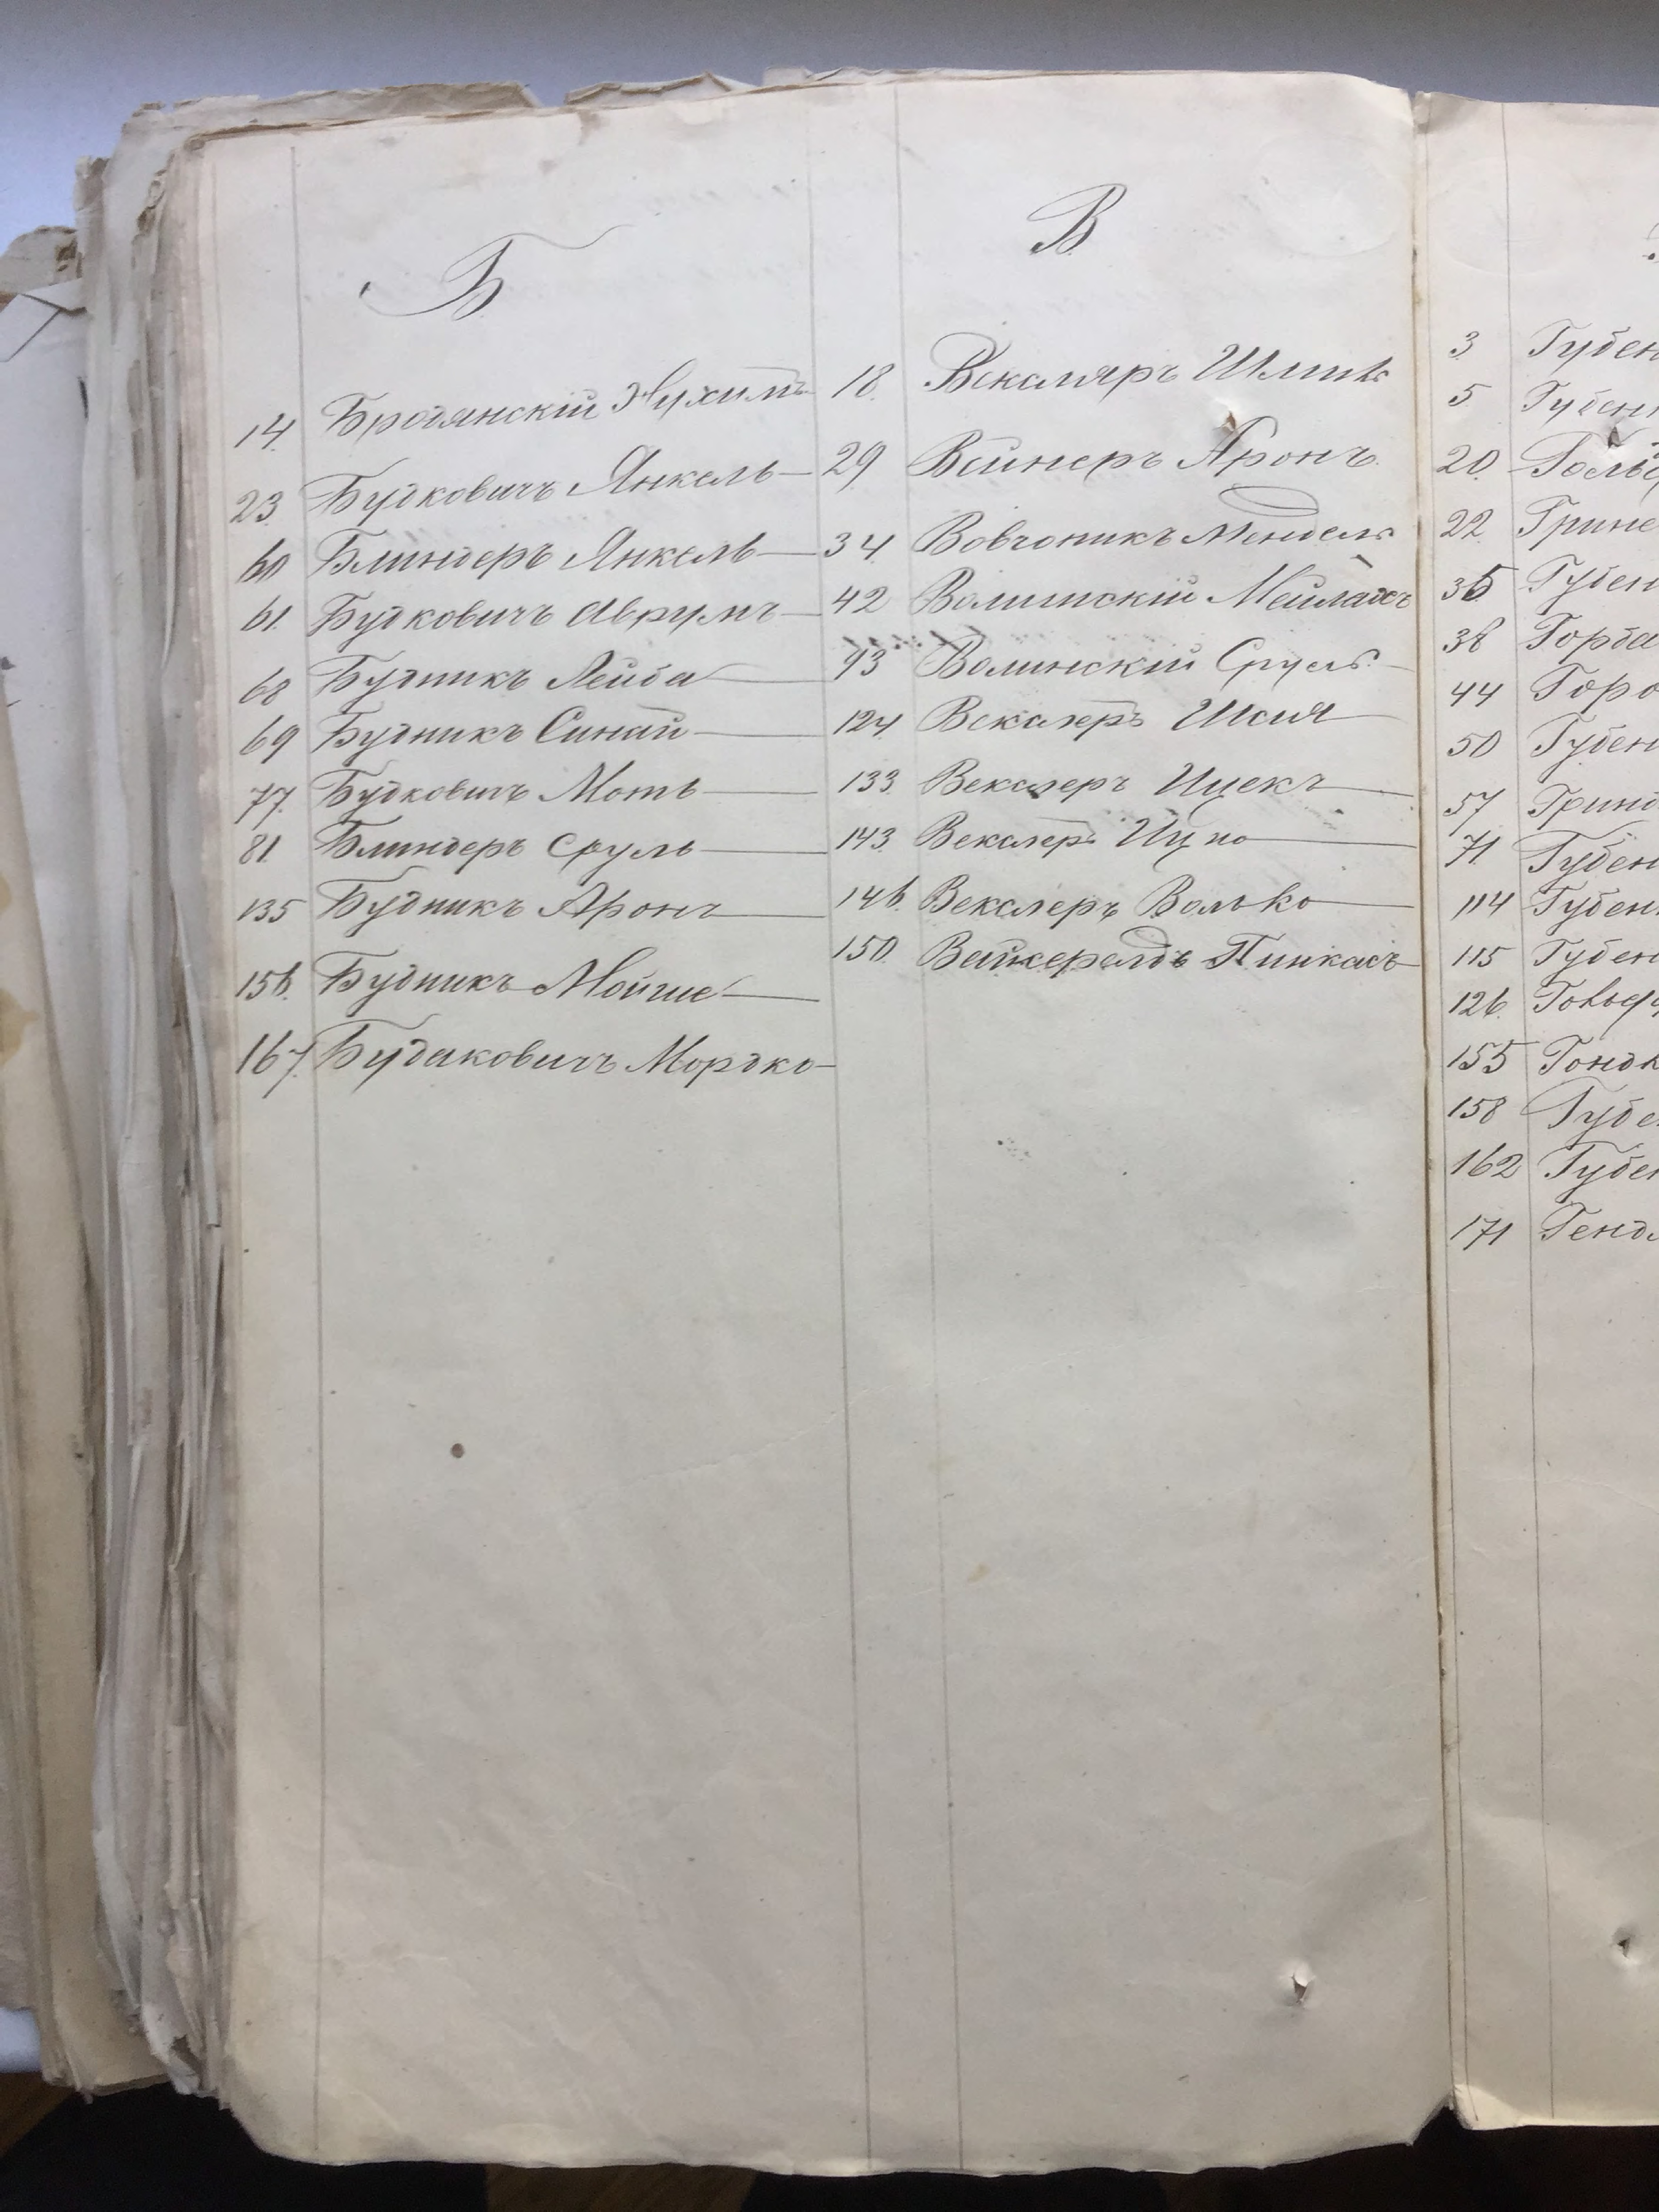 Б
14. Бродянскій Нухимъ
23. Будковичъ Янкель
60 Блиндеръ Янкель
61. Будковичъ Аврумъ
68 Будникъ Лейба
69 Будникъ Синай
77. Будковичъ Моть
81. Блиндеръ Сруль
135 Будникъ Аронъ
156. Будникъ Мойше
167. Будаковичъ Мордко
В
18. Векаляръ
29 Вейнеръ Аронъ
34. Вовчоникъ Мендель
42 Волинскій Мейлахъ
93 Волинскій Сруль
124 Векслеръ Шая
133. Векслеръ Ицекъ
143. Векслеръ Ицко
146. Векслеръ Волько
150. Пинкасъ
3. Губен
5 Губен
20. Гольд
22. Грине
35. Губен
38 Горба
44 Горо
50 Губен
57 Гринб
71. Губен
114 Губен
115 Губен
126.
155 Гонок
158 Губе
162 Губен
171 Генд